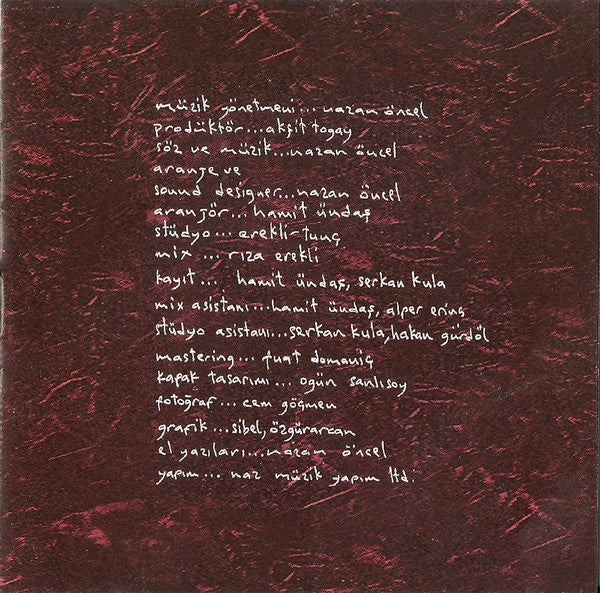 müzik yönetmeni... nazan öncel
prodüktör...akşit togay
söz ve müzik...nazan öncel
aranje ve
sound designer...nazan öncel
aranjör...hamit ündaş
stüdyo...erekli-tunç
mix ... rıza erekli
kayıt... hamit ündaş, serkan kula
mix asistanı...hamit ündaş, alper erinç
stüdyo asistanı...serkan kula, hakan gürdöl
mastering... fuat domaniç
kapak tasarımı... ogün sanlısoy
fotoğraf... cem göçmen
grafik...sibel, özgürarcan
el yazıları...nazan öncel
yapım... naz müzik yapım ltd.